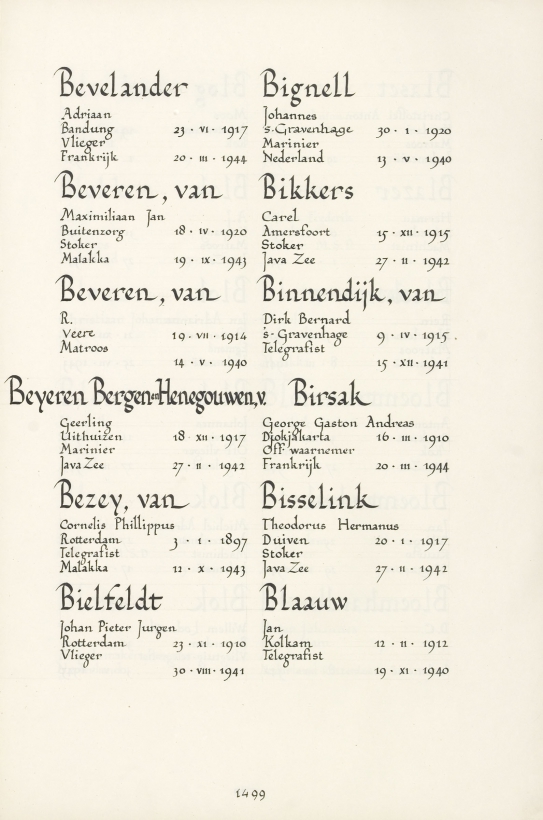 Bevelander
Adriaan
Bandung 23 · VI · 1917
Vlieger
Frankrijk 20 · III · 1944
Beveren, van
Maximiliaan Jan
Buitenzorg 18 · IV · 1920
Stoker
Malakka 19 · IX · 1943
Beveren, van
R.
Veere 19 · VII · 1914
Matroos
14 · V · 1940
Beyeren Bergen en Henegouwen, v.
Geerling
Uithuizen 18 · XII · 1917
Marinier
Java Zee 27 · II · 1942
Bezey, van
Cornelis Phillippus
Rotterdam 3 · I · 1897
Telegrafist
Malakka 12 · X · 1943
Bielfeldt
Johan Pieter Jurgen
Rotterdam 23 · XI · 1910
Vlieger
30 · VIII · 1941
Bignell
Johannes
's-Gravenhage 30 · I · 1920
Marinier
Nederland 13 · V · 1940
Bikkers
Carel
Amersfoort 15 · XII · 1915
Stoker
Java Zee 27 · II · 1942
Binnendijk, van
Dirk Bernard
's-Gravenhage 9 · IV · 1915
Telegrafist
15 · XII · 1941
Birsak
George Gaston Andreas
Djokjakarta 16 · III · 1910
Off. waarnemer
Frankrijk 20 · III · 1944
Bisselink
Theodorus Hermanus
Duiven 20 · I · 1917
Stoker
Java Zee 27 · II · 1942
Blaauw
Jan
Kolkam 12 · II · 1912
Telegrafist
19 · XI · 1940
1499